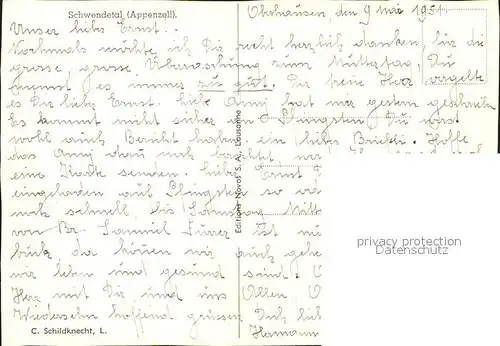 Schwendetal (Appenzell).
Oberhausen, den 9 Mai 1951
Unser liebs Ernst..
Nochmals möchte ich Dir recht herzlich danken, für die
grosse, grosse Überraschung zum Muttertag, Du
meinst es immer zu gut. Der treue Herr vergelte
es Dir lieber Ernst. liebe Annj hat mir gestern geschrieben
Es kommt nicht sicher an Pfingsten Du wirst
wohl auch Bericht haben ein liebes Briefli. Hoffe
das Annj
eine Karte senden. liebe Ernst
eingeladen auf Pfingsten so
noch schnell, bis Samstag Mitt
von Br. Samuel Furrer ist
da können wir auch gehe
wir leben und gesund sind.
Herr mit Dir und uns Allen,
Wiedersehn hoffend grüssen Dich
Hermann
Editions Novos S. A., Lausanne
C. Schildknecht, L.
privacy protection
Datenschutz